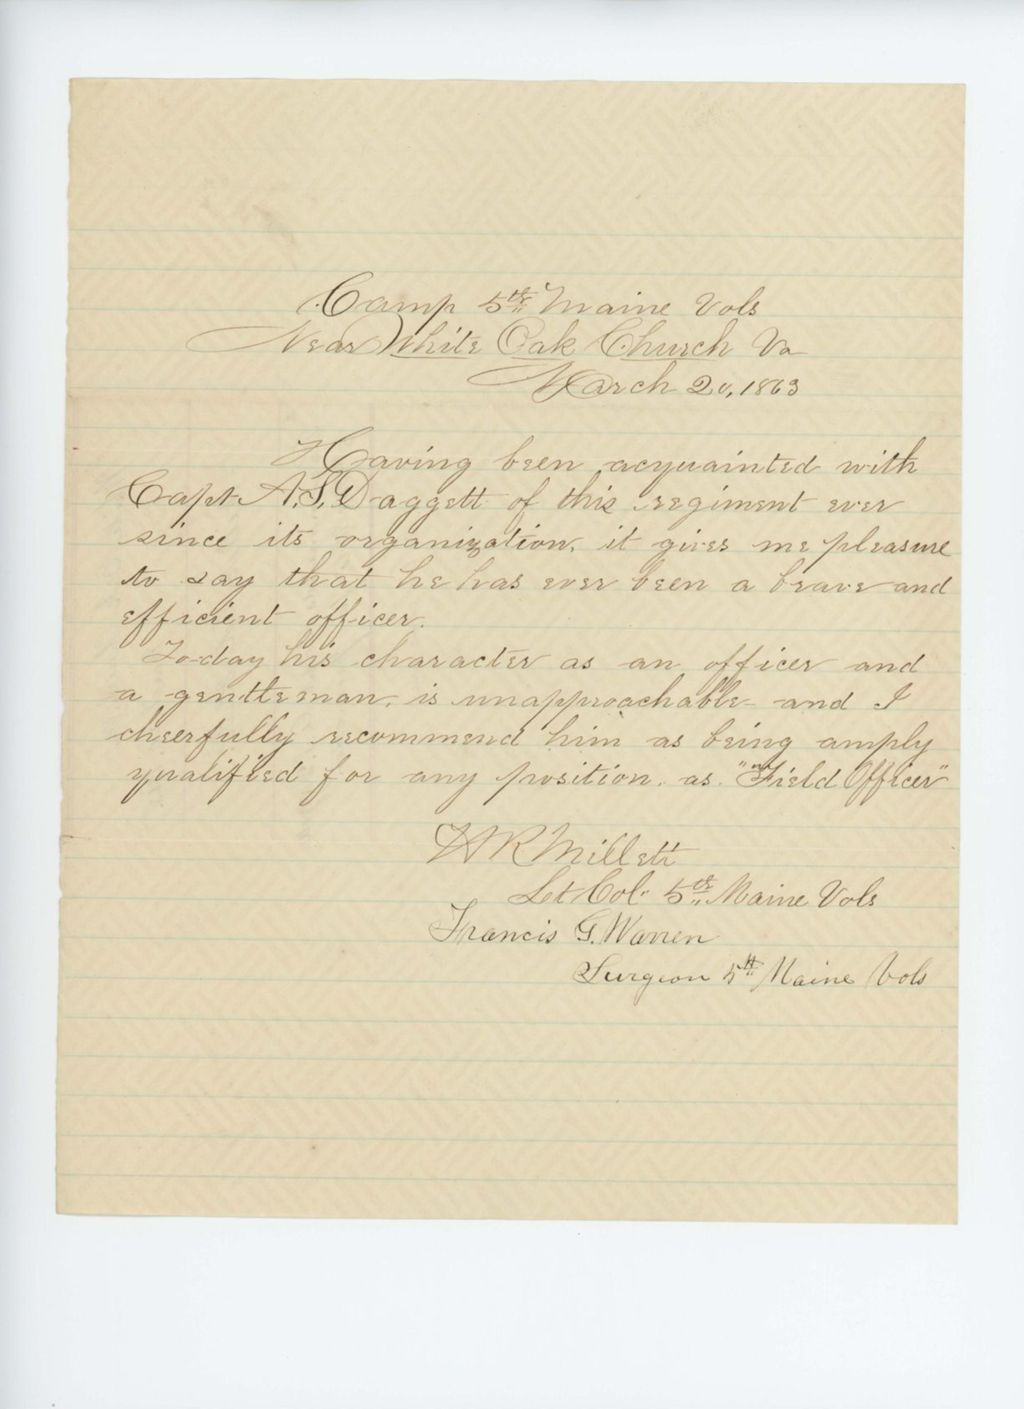 Camp 5th Maine Vols
Near White Oak Church Va
March 20, 1863
Having been acquainted with
Capt. A. S. Daggett of this regiment ever
since its organization, it gives me pleasure
to say that he has ever been a brave and
efficient officer.
To-day his character as an officer and
a gentleman, is unapproachable and I
cheerfully recommend him as being amply
qualified for any position as "Field Officer"
H R Millett
Lt Col. 5th Maine Vols
Francis G. Warren
Surgeon 5th Maine Vols